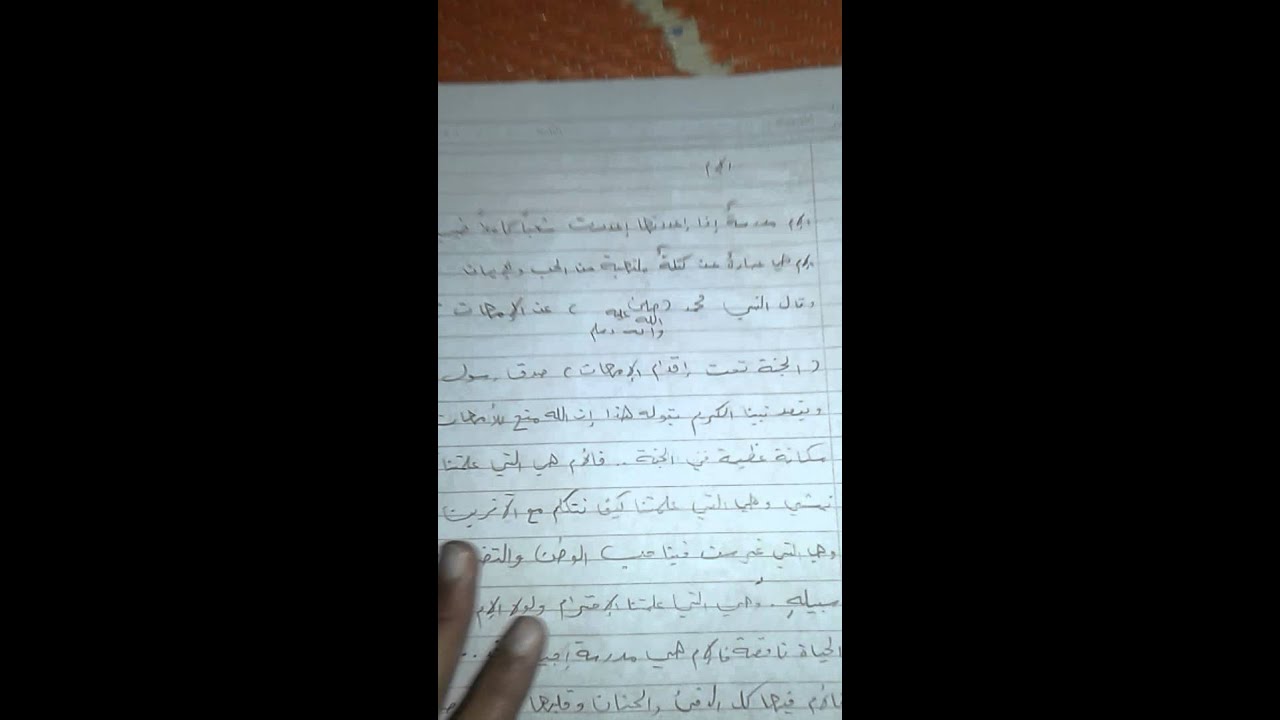 الأم
الأم مدرسةٌ إذا إعددتها إعددت شعباً
الأم هي عبارة عن كتلةٌ ملتهبة من الحب والإيمان
وقال النبي محمد (صلى الله عليه وآله وسلم) عن الإمهات
(الجنة تحت إقدام الإمهات) صدق رسول
ويقصد نبينا الكريم بقوله هذا إن الله منح للأمهات
مكانة عظيمة في الجنة .. فالأم هي التي علمتنا
نمشي وهي التي علمتنا كيف نتكلم مع الآخرين
وهي التي غرست فينا حب الوطن
سبيله .. وهي التي علمتنا الإحترام ولولا الإم
الحياة ناقصة فالإم هي مدرسة
فالأم فيها كل الدفئ والحنان وقلبها